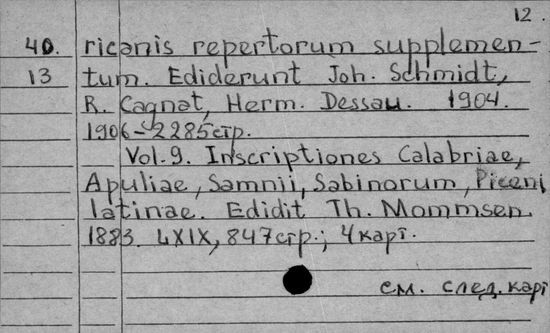 12.
40. ricanis repertorum supplemen-
13 tum. Ediderunt Joh. Schmidt,
R. Cagnat, Herm. Dessau. 1904.
1906-2285стр.
Vol. 9. Inscriptiones Calabriae,
Apuliae, Samnii, Sabinorum, Piceni
latinae. Edidit Th. Mommsen
1883. LXIX, 847стр.; 4карт.
см. след. карт